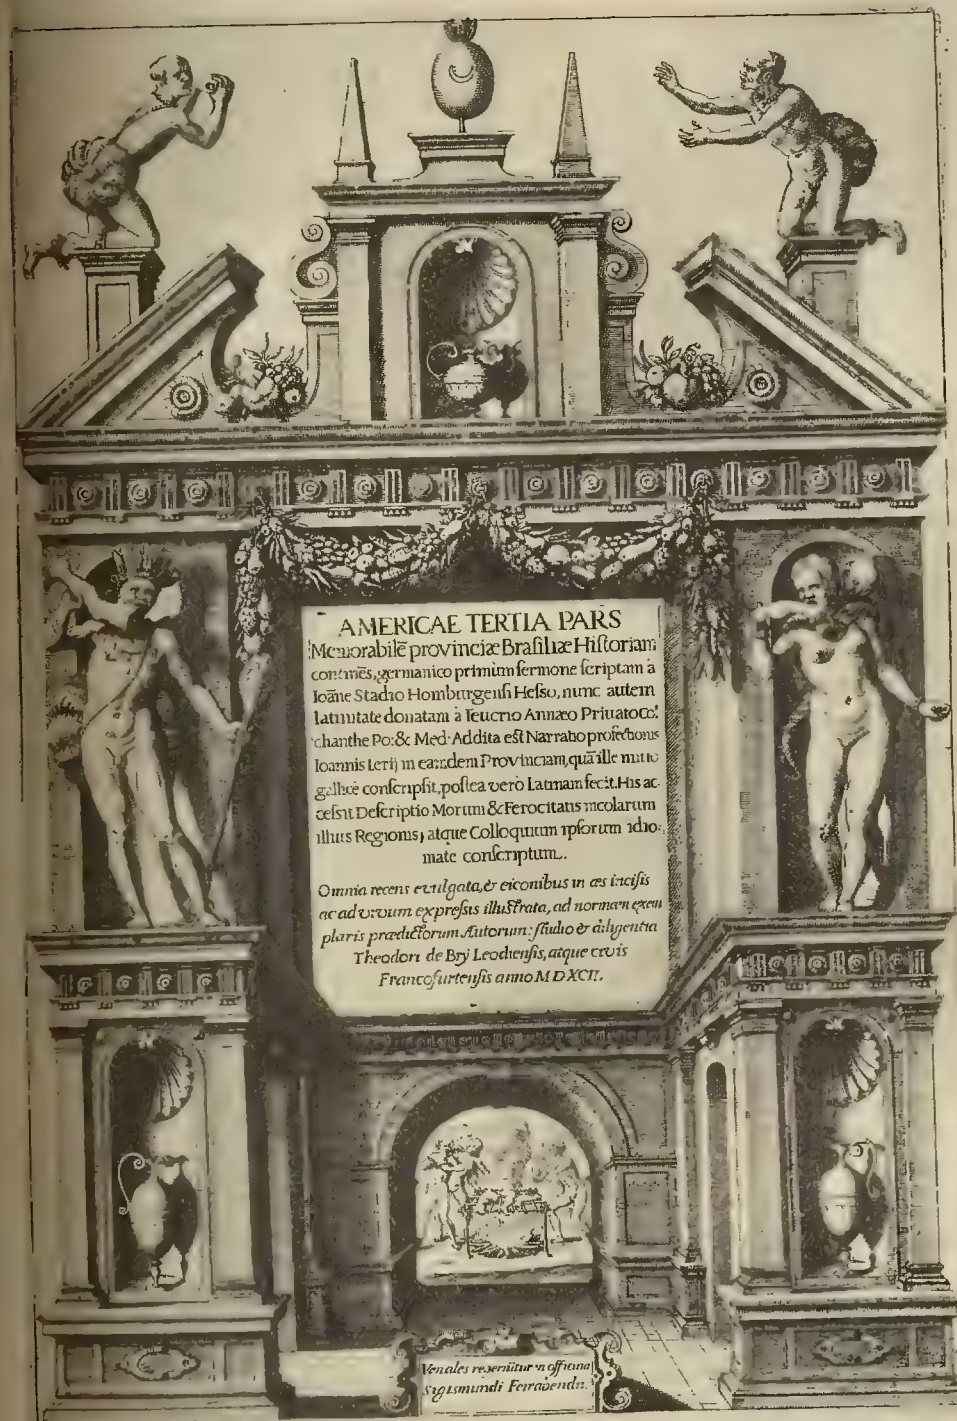 AMERICAE TERTIA PARS
Memorabilē provinciæ Braſiliæ Hiſtoriam
continēs, germanico primùm ſermone ſcriptam à
Ioāne Stadio Homburgenſi Heſſo, nunc autem
latinitate donatam à Teucrio Annæo Priuato Col
chanthe Po: & Med: Addita eſt Narratio profectionis
Ioannis Lerij in eamdem Provinciam, quā ille initio
gallicè conſcripſit, poſtea verò Latinam fecit. His ac.
ceſsit Deſcriptio Morum & Ferocitatis incolarum
illius Regionis, atque Colloquium ipſorum idio:
mate conſcriptum.
Omnia recens evulgata, & eiconibus in æs inciſis
ac ad vivum expreſsis illuſtrata, ad normam exem
plaris prædictorum Autorum: ſtudio & diligentia
Theodori de Brÿ Leodienſis, atque civis
Francofurtenſis anno M DXCII.
Venales reperiūtur in officina
Sigismundi Feirabendii.